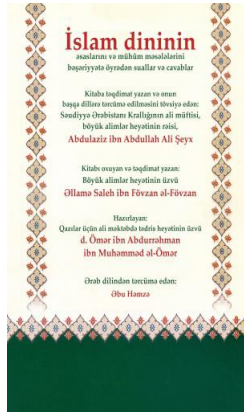 İslam dininin
əsaslarını və mühüm məsələlərini
bəşəriyyətə öyrədən suallar və cavablar
Kitaba təqdimat yazan və onun
başqa dillərə tərcümə edilməsini tövsiyə edən:
Səudiyyə Ərəbistanı Krallığının ali müftisi,
böyük alimlər heyətinin rəisi,
Abdulaziz ibn Abdullah Ali Şeyx
Kitabı oxuyan və təqdimat yazan:
Böyük alimlər heyətinin üzvü
Əllamə Saleh ibn Fövzan əl-Fövzan
Hazırlayan:
Qazılar üçün ali məktəbdə tədris heyətinin üzvü
d. Ömər ibn Abdurrəhman
ibn Muhəmməd əl-Ömər
Ərəb dilindən tərcümə edən:
Əbu Həmzə